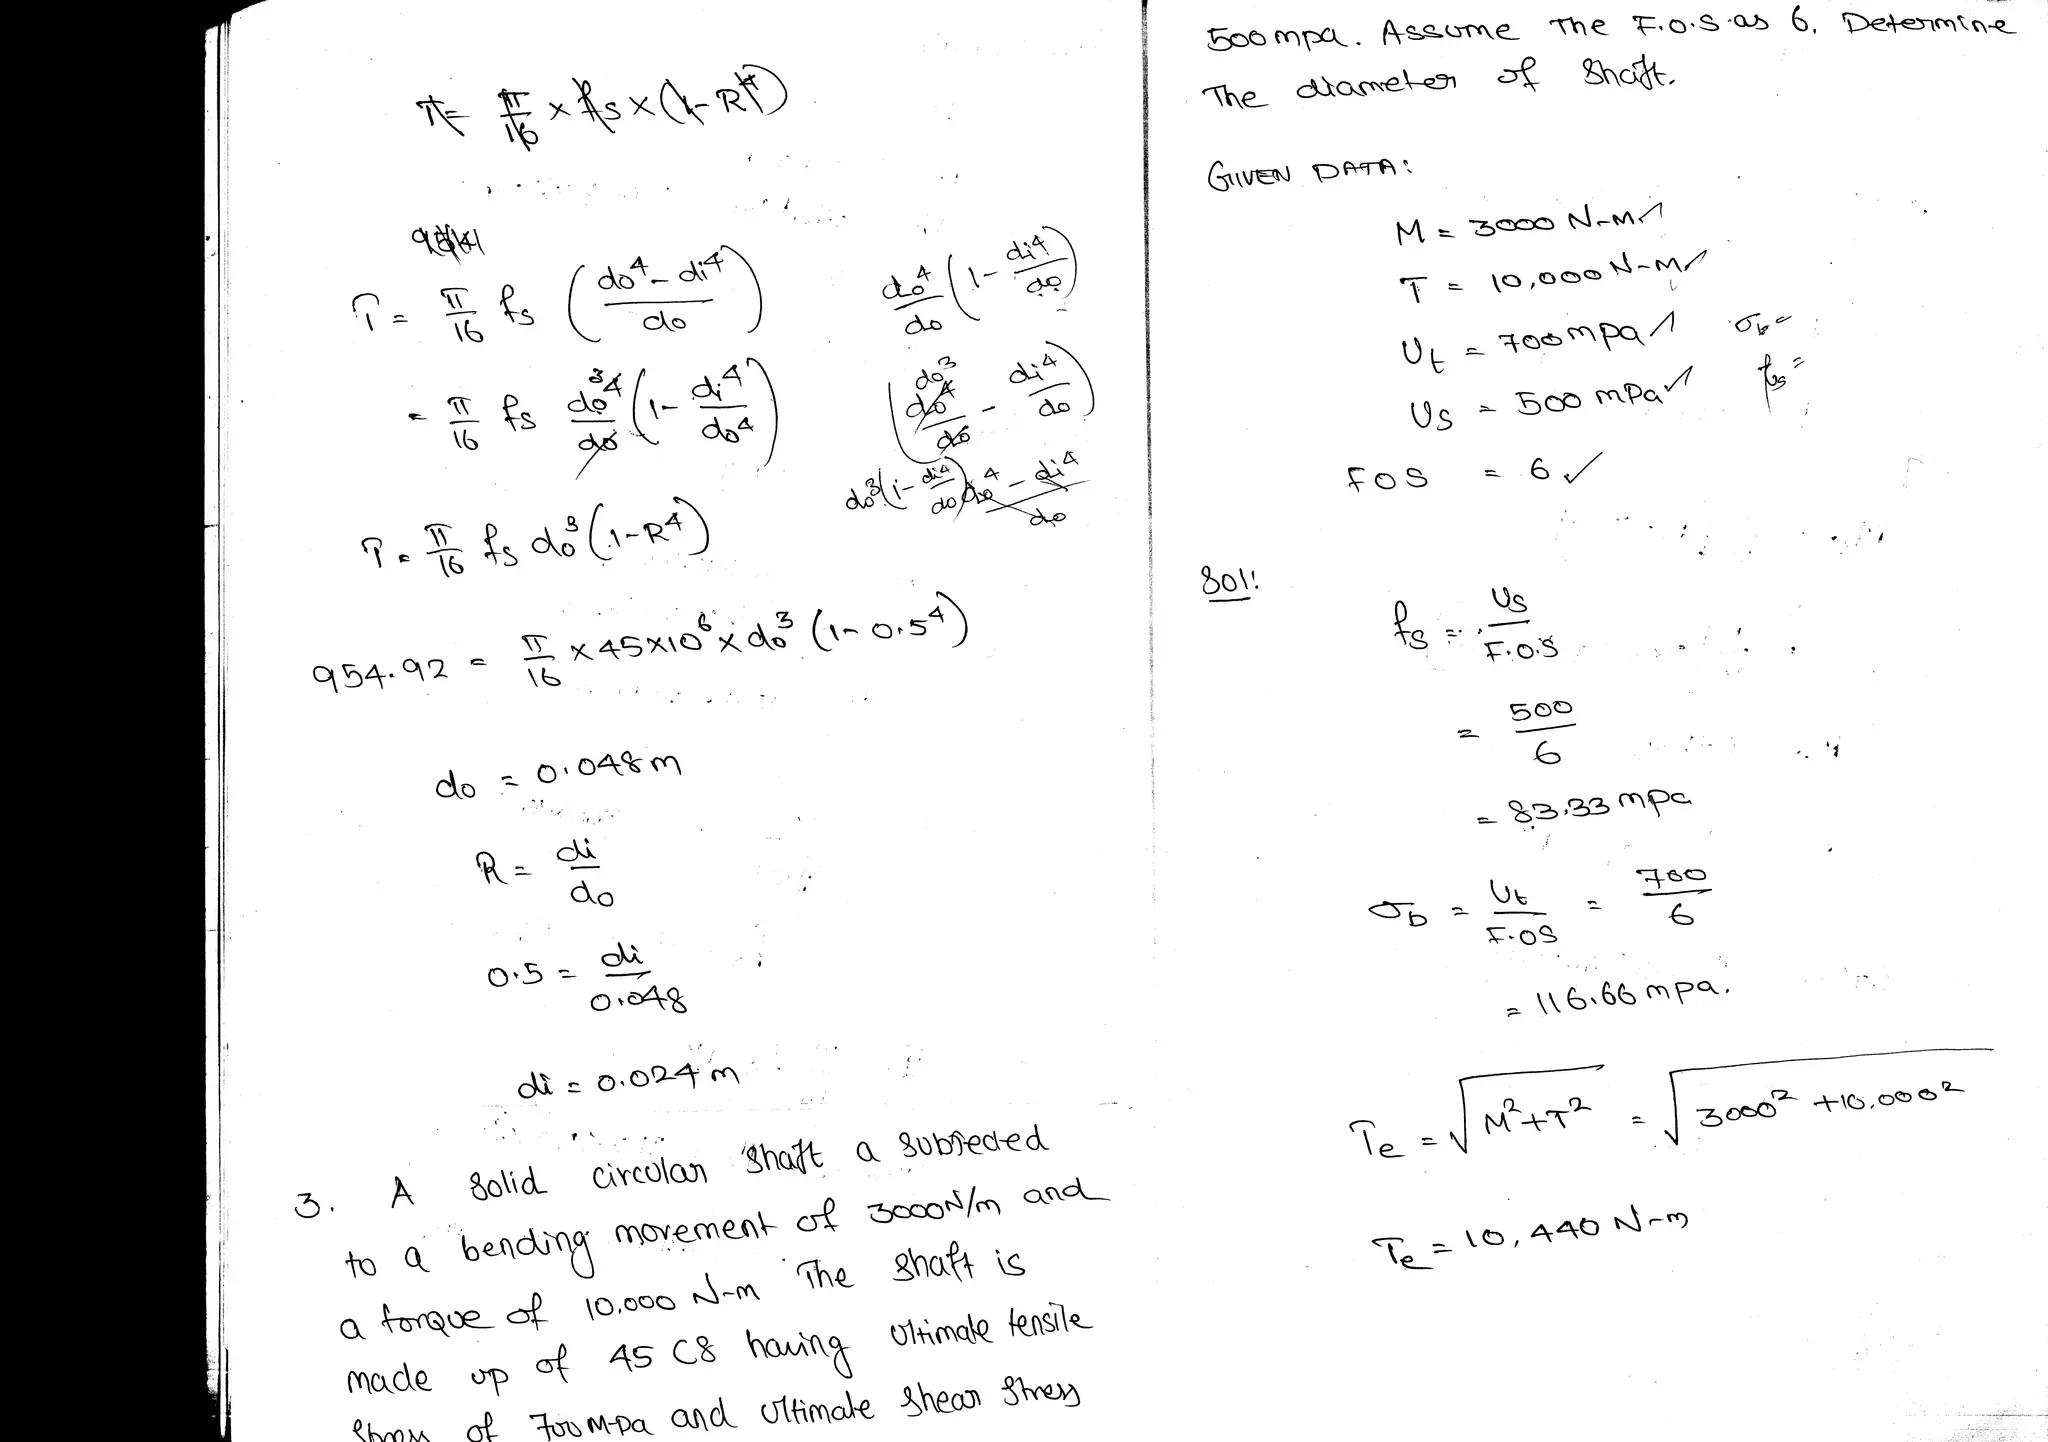 T = π/16 × fs × (1-R⁴)
T = π/16 fs (do⁴ - di⁴ / do)
do⁴/do (1 - di⁴/do)
= π/16 fs do⁴/do ³ (1 - di⁴/do⁴)
(do⁴/do do³ - di⁴/do)
do³(1 - di⁴/do) do⁴ - di⁴ / do
T = π/16 fs do³ (1-R⁴)
954.92 = π/16 × 45×10⁶ × do³ (1-0.5⁴)
do = 0.048m
R = di/do
0.5 = di/0.048
di = 0.024 m
3. A Solid circular shaft a subjected
to a bending movement of 3000N/m and
a torque of 10,000 N-m The shaft is
made up of 45 C8 having ultimate tensile
stress of 700 M.Pa and ultimate shear stress
500 mpa. Assume The F.O.S as 6. Determine
The diameter of Shaft.
GIIVEN DATA:
M = 3000 N-M ✓
T = 10,000 N-M ✓
Ut = 700 mpa ✓ σb =
Us = 500 mPa ✓ fs =
FOS = 6 ✓
Sol:
fs = Us/F.O.S
= 500/6
= 83.33 mpa
σb = Ut/F.OS = 700/6
= 116.66 mpa.
Te = √M²+T² = √3000² +10,000²
Te = 10,440 N-m